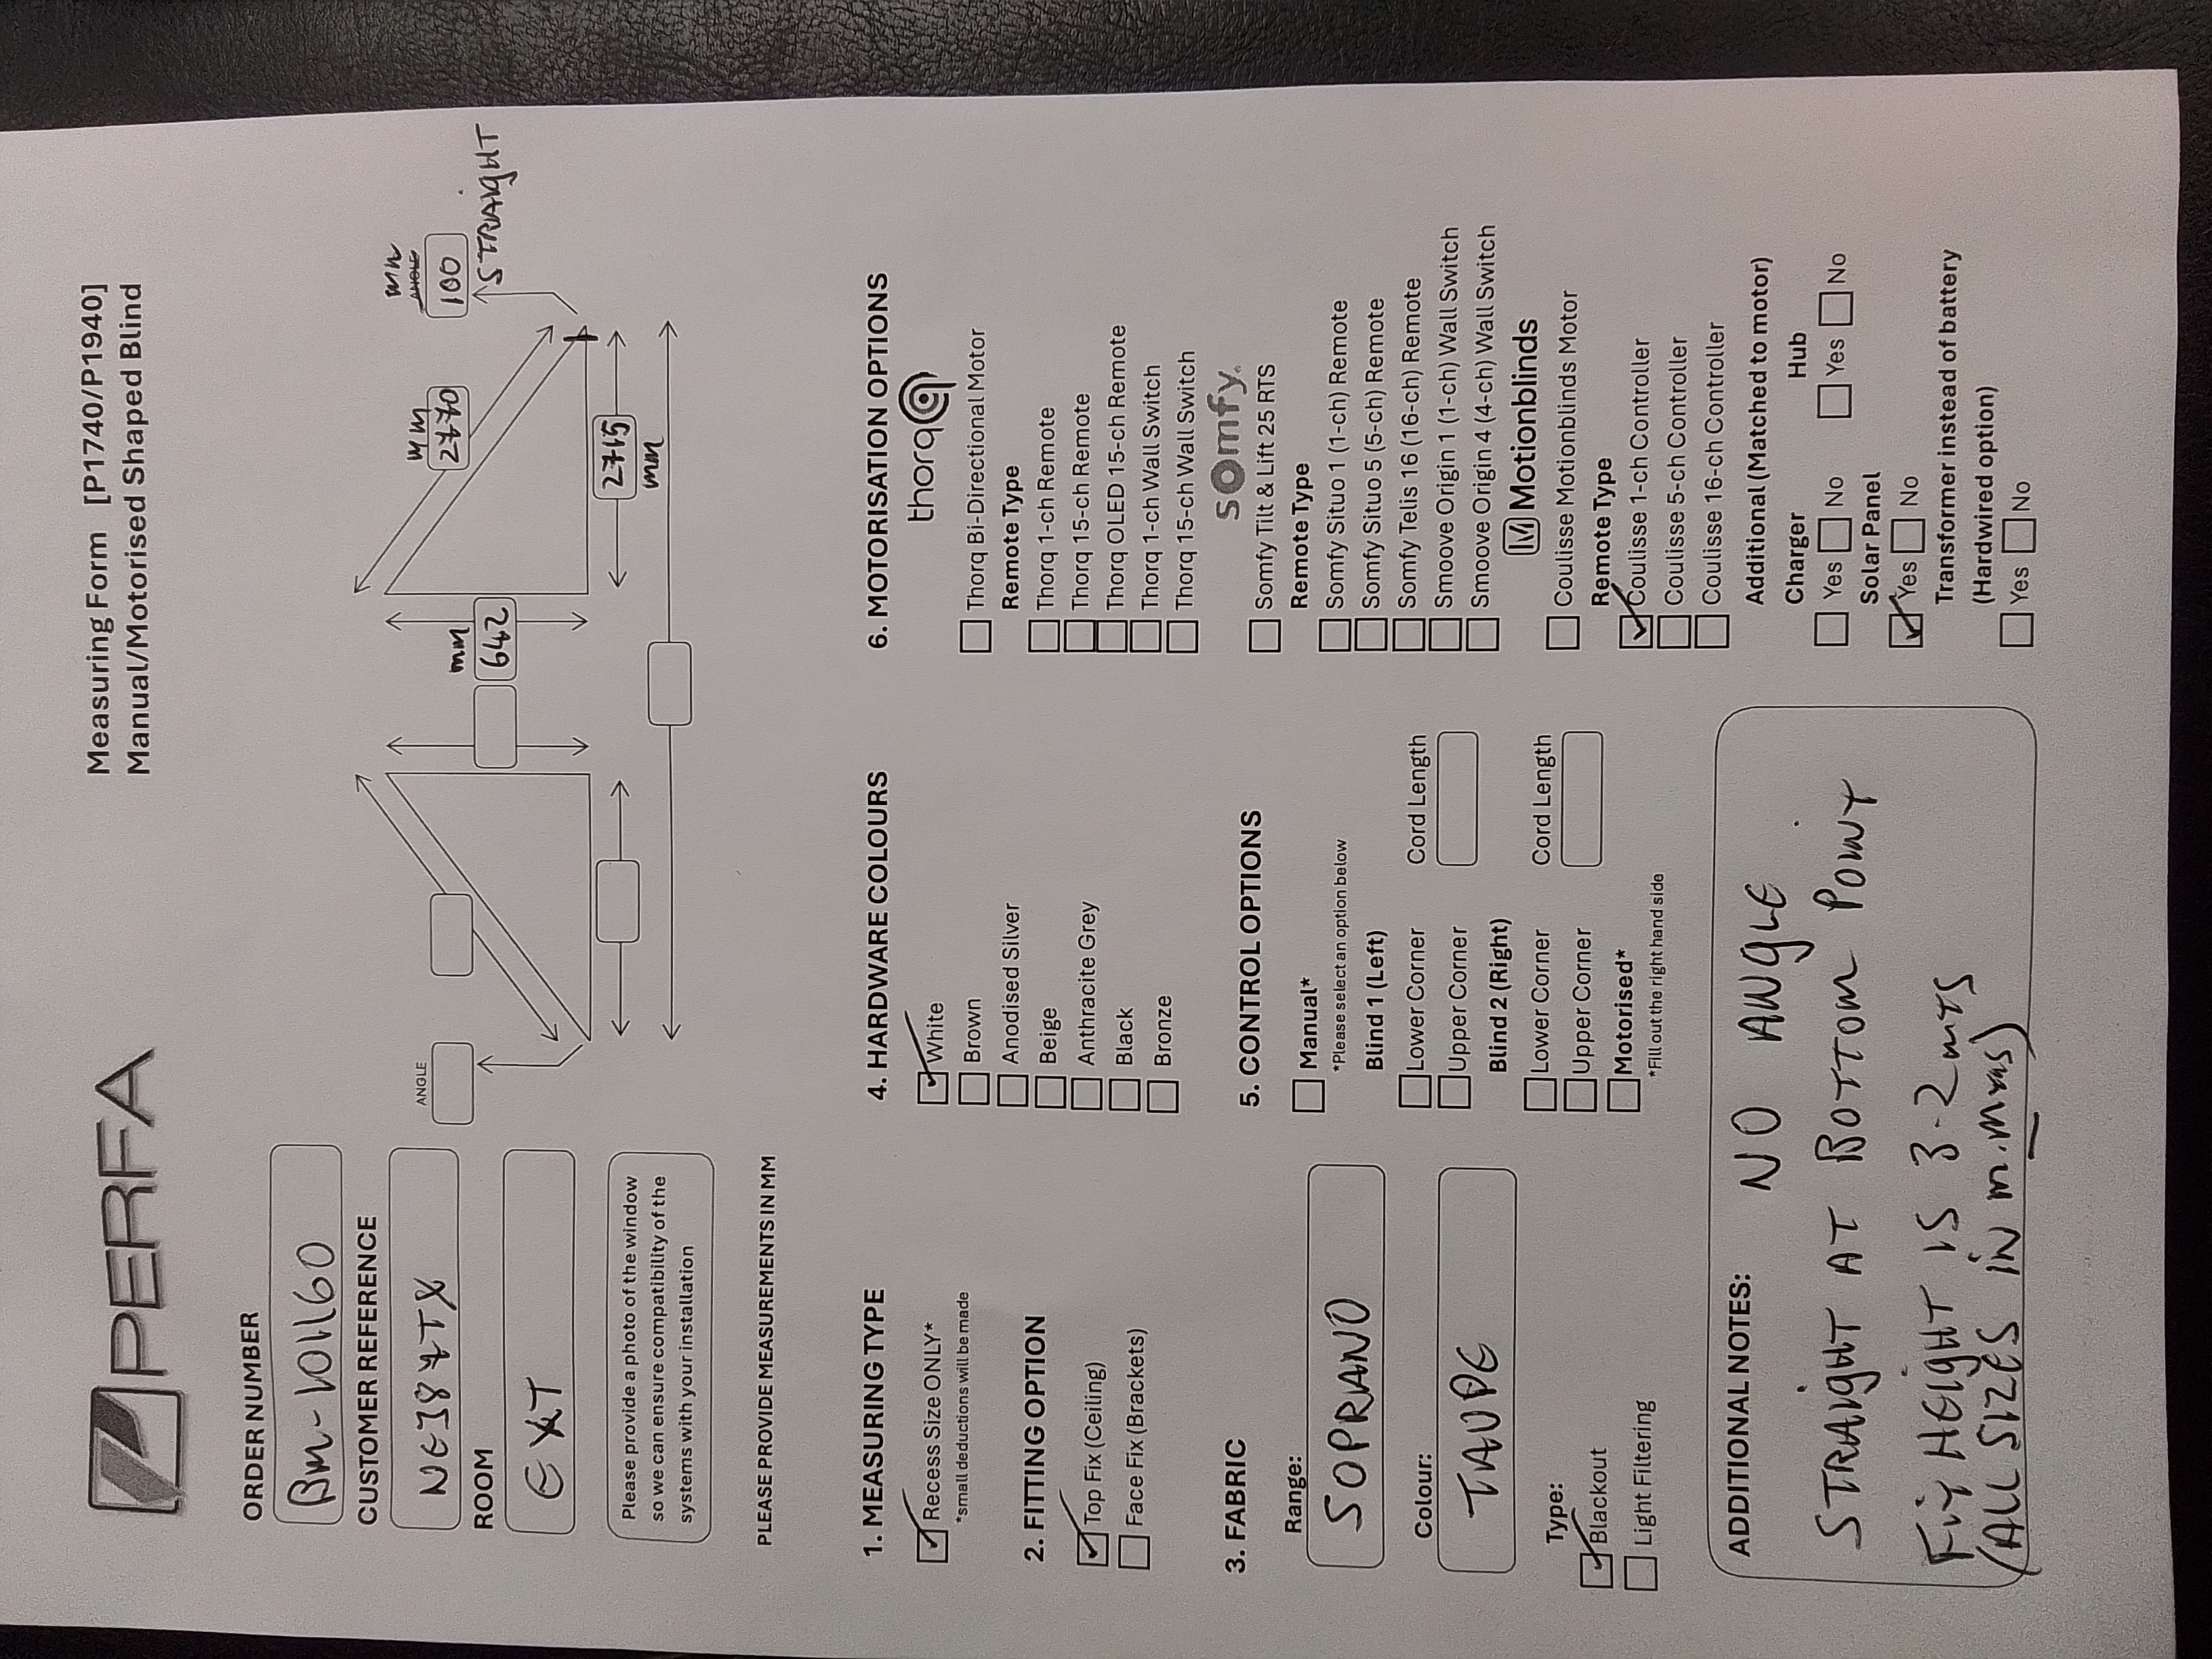 PERFA
Measuring Form [P1740/P1940]
Manual/Motorised Shaped Blind
ORDER NUMBER
BM-101160
CUSTOMER REFERENCE
NE38 7TX
ROOM
EXT
Please provide a photo of the window
so we can ensure compatibility of the
systems with your installation
PLEASE PROVIDE MEASUREMENTS IN MM
ANGLE
mm
642
mm
2770
mm
ANGLE
100
STRAIGHT
2715
mm
1. MEASURING TYPE
Recess Size ONLY*
*small deductions will be made
2. FITTING OPTION
Top Fix (Ceiling)
Face Fix (Brackets)
3. FABRIC
Range:
SOPRANO
Colour:
TAUPE
Type:
Blackout
Light Filtering
4. HARDWARE COLOURS
White
Brown
Anodised Silver
Beige
Anthracite Grey
Black
Bronze
5. CONTROL OPTIONS
Manual*
*Please select an option below
Blind 1 (Left)
Lower Corner
Upper Corner
Cord Length
Blind 2 (Right)
Lower Corner
Upper Corner
Cord Length
Motorised*
*Fill out the right hand side
6. MOTORISATION OPTIONS
thorq
Thorq Bi-Directional Motor
Remote Type
Thorq 1-ch Remote
Thorq 15-ch Remote
Thorq OLED 15-ch Remote
Thorq 1-ch Wall Switch
Thorq 15-ch Wall Switch
somfy.
Somfy Tilt & Lift 25 RTS
Remote Type
Somfy Situo 1 (1-ch) Remote
Somfy Situo 5 (5-ch) Remote
Somfy Telis 16 (16-ch) Remote
Smoove Origin 1 (1-ch) Wall Switch
Smoove Origin 4 (4-ch) Wall Switch
M Motionblinds
Coulisse Motionblinds Motor
Remote Type
Coulisse 1-ch Controller
Coulisse 5-ch Controller
Coulisse 16-ch Controller
Additional (Matched to motor)
Charger Hub
Yes No Yes No
Solar Panel
Yes No
Transformer instead of battery
(Hardwired option)
Yes No
ADDITIONAL NOTES: NO ANGLE
STRAIGHT AT BOTTOM POINT
FIX HEIGHT IS 3-2 mts
(ALL SIZES IN m.ms)